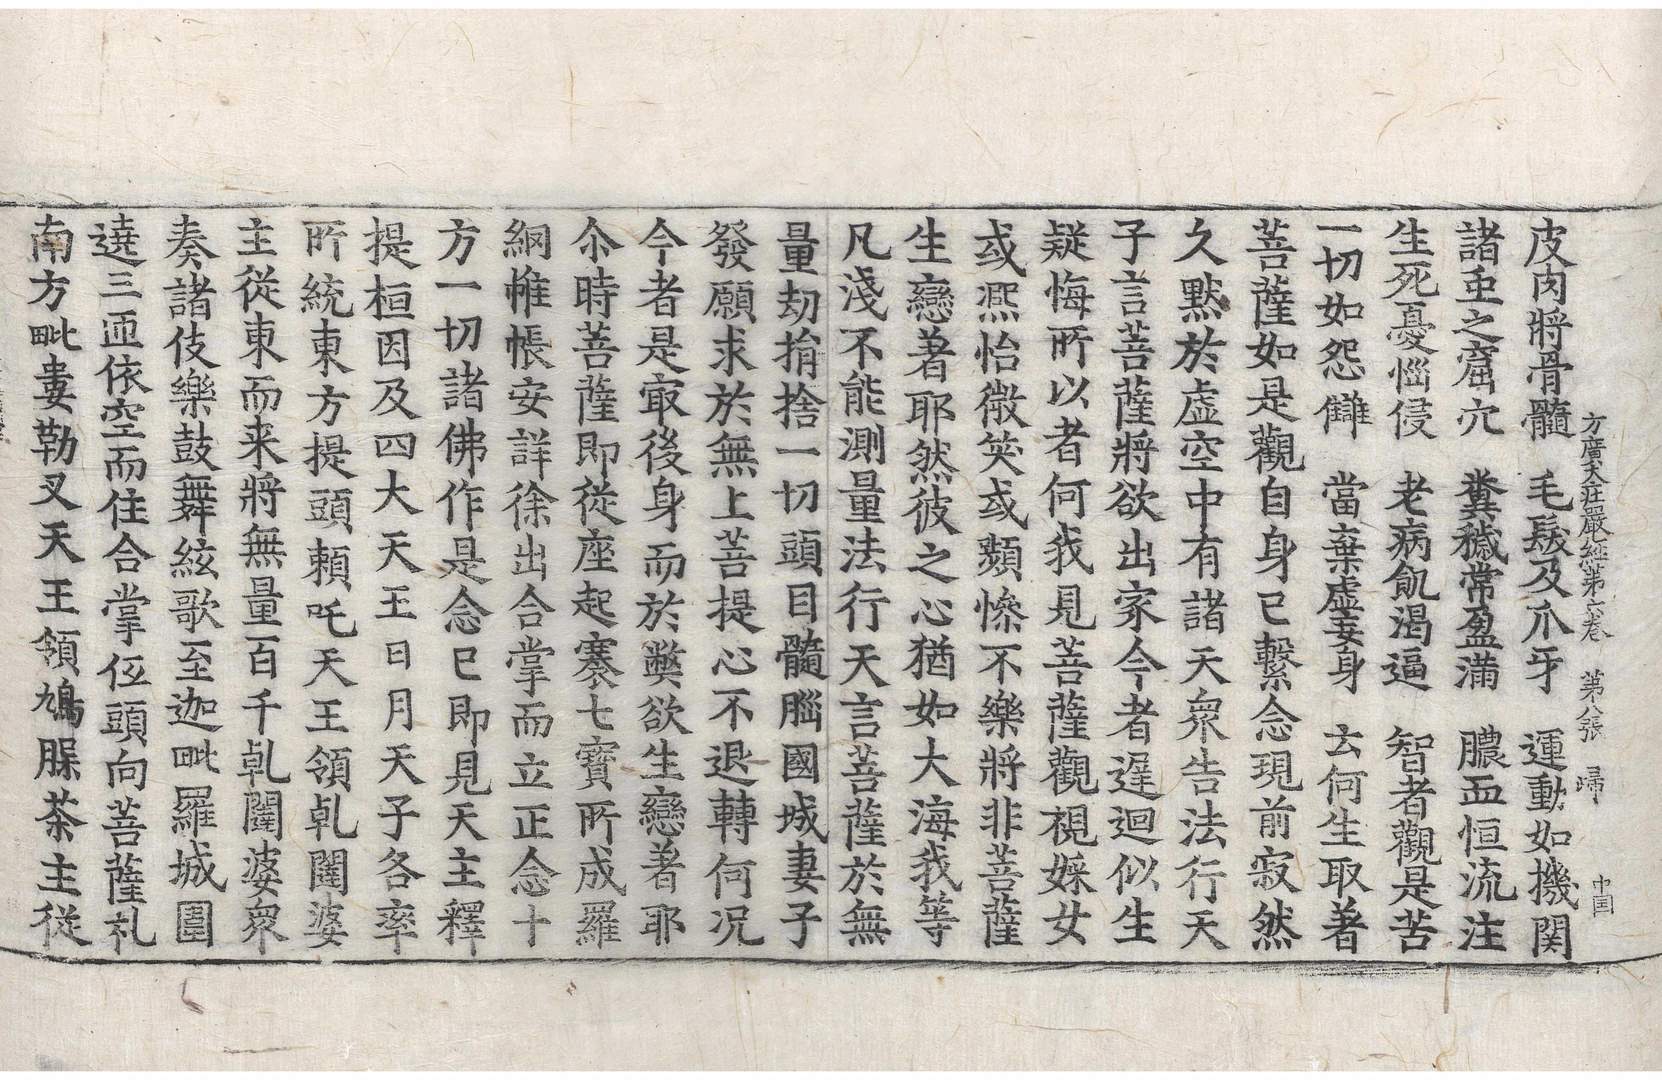 方廣大莊嚴經第六卷 第八張 歸
皮肉將骨髓 毛髮及爪牙 運動如機関
諸虫之窟穴 糞穢常盈滿 膿血恒流注
生死憂惱侵 老病飢渴逼 智者觀是苦
一切如怨讎 當棄虛妄身 云何生取著
菩薩如是觀自身已繫念現前寂然
久默於虛空中有諸天衆告法行天
子言菩薩將欲出家今者遲迴似生
疑悔所以者何我見菩薩觀視婇女
或熈怡微笑或顰慘不樂將非菩薩
生戀著耶然彼之心猶如大海我等
凡淺不能測量法行天言菩薩於無
量劫捐捨一切頭目髓腦國城妻子
發願求於無上菩提心不退轉何况
今者是㝡後身而於弊欲生戀著耶
尒時菩薩即從座起褰七寶所成羅
網帷帳安詳徐出合掌而立正念十
方一切諸佛作是念已即見天主釋
提桓因及四大天王日月天子各率
所統東方提頭頼吒天王領乹闥婆
主從東而来將無量百千乹闥婆衆
奏諸伎樂鼓舞絃歌至迦毗羅城圍
遶三匝依空而住合掌伍頭向菩薩礼
南方毗婁勒叉天王領鳩槃茶主從